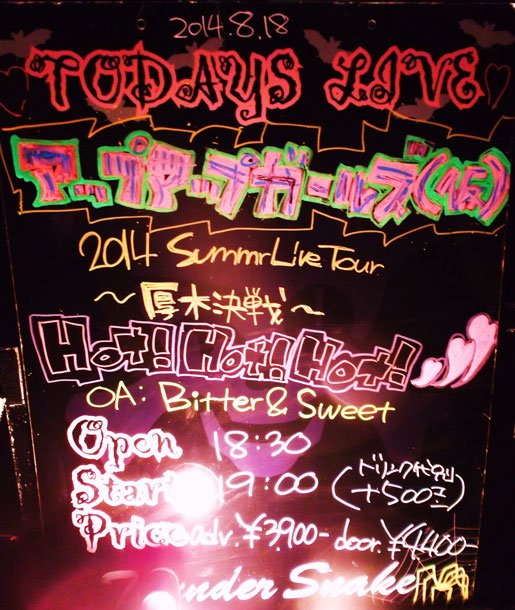 2014.8.18
TODAYS LIVE
アップアップガールズ(仮)
2014 Summr Live Tour
〜厚木決戦〜
Hot! Hot! Hot!
OA: Bitter & Sweet
Open 18:30
Start 19:00 (ドリンク代別 +500円)
Price adv.¥3900- door.¥4400-
under Snake